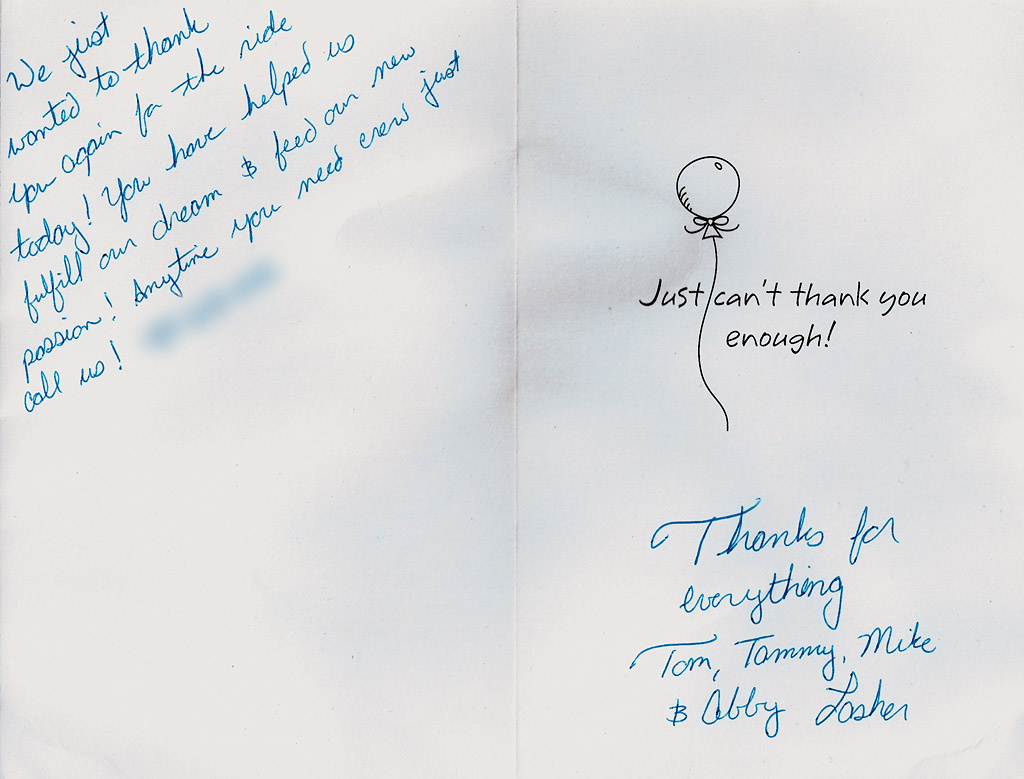 We just
wanted to thank
you again for the ride
today! You have helped us
fulfill our dream & feed our new
passion! Anytime you need crew just
call us!
Just can't thank you
enough!
Thanks for
everything
Tom, Tammy, Mike
& Abby Losher